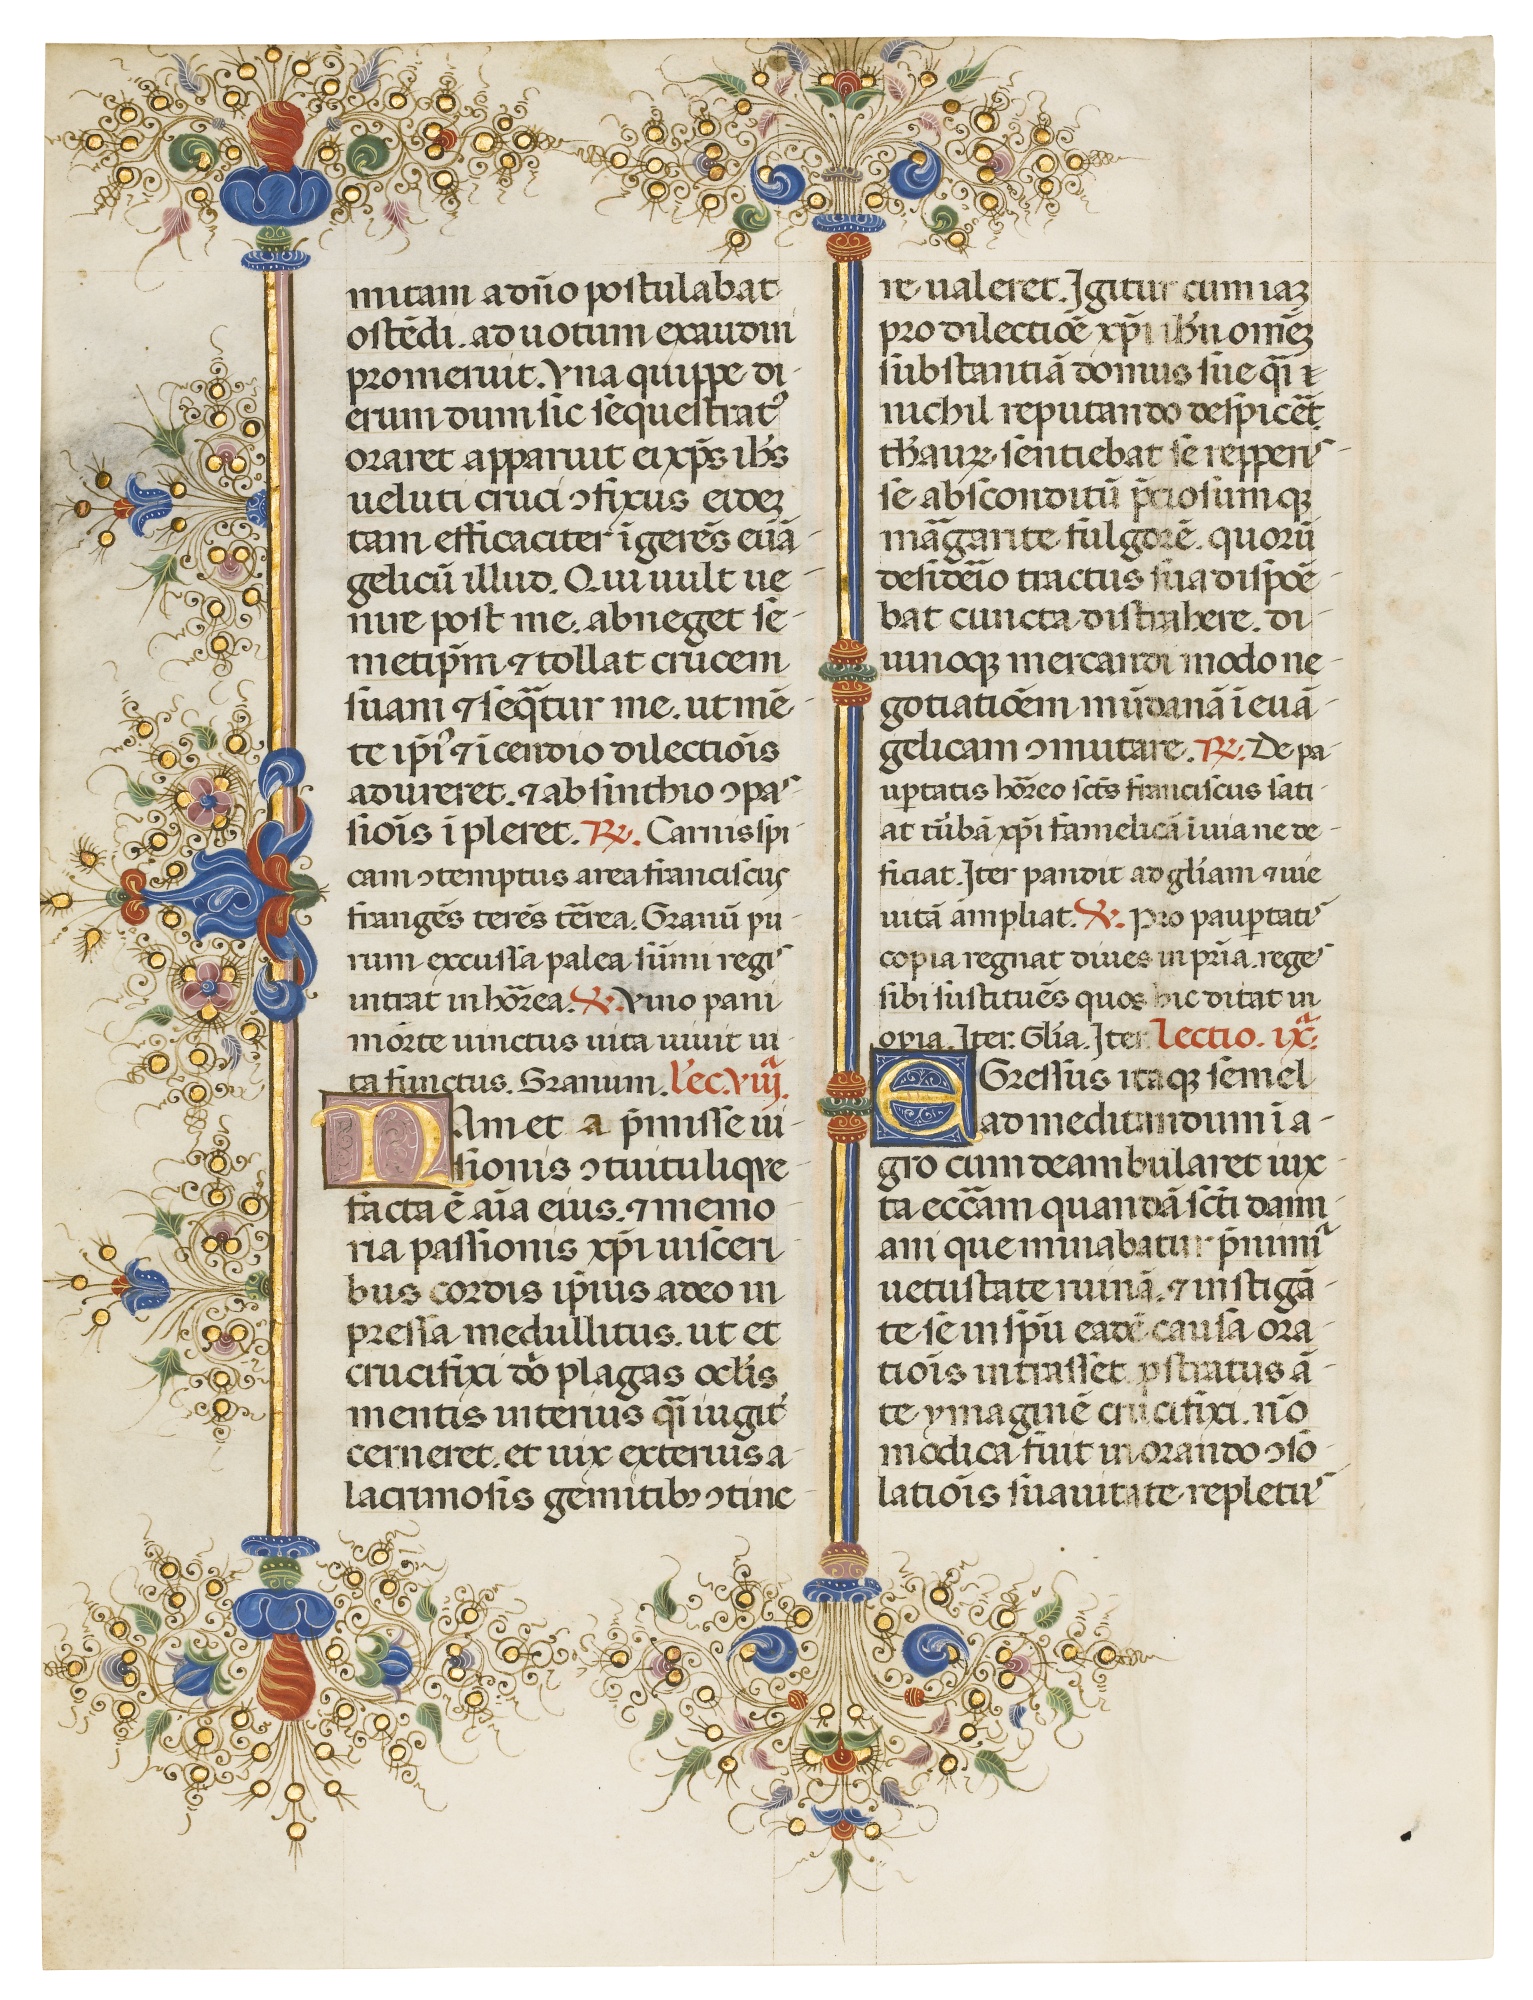 mitam a dño postulabat
ostēdi. ad uotum exaudiri
promeruit. Vna quippe di-
erum dum sic sequestrat᷒
oraret apparuit ei xp̄s ih̄s
ueluti cruci ↄfixus eideꝫ
tam efficaciter īgerēs euā-
gelicū illud. Qui uult ue-
nire post me. abneget se-
metip̄m ⁊ tollat crucem
suam ⁊ seq̄tur me. ut mē-
te ip̄i᷒ ⁊ īcendio dilectiōis
adureret. ⁊ absinthio ↄpas-
siōis īpleret. ℞. Carnis spi
cam ↄtemptus area franciscus
frangēs terēs tērea. Granū pu-
rum excussa palea sūmi regis
intrat in hōrea. ℣. Viuo pani
morte uinctus uita uiuit ui-
ta functus. Granum. Lec. viijᵃ.
NAm et a p̄misse ui-
sionis ↄtuitu liq̄re
facta ē aīa eius. ⁊ memo
ria passionis xp̄i uisceri
bus cordis ip̄ius adeo im
pressa medullitus. ut et
crucifixi dō plagas oc̄lis
mentis interius q̄i iugit᷒
cerneret. et uix exterius a-
lacrimosis gemitibꝫ ↄtine
re ualeret. Igitur cum iaꝫ
pro dilectiōe xp̄i ih̄u omēꝫ
substantiā domus sue q̄i ⁊
nichil reputando despicēt.
th̄auꝝ sentiebat se repperis-
se absconditū p̄ciosumqꝫ
māgarite fulgorē. quorū
desidēio tractus sua dispōe-
bat cuncta distrahere. di-
uinoqꝫ mercandi modo ne-
gotiatiōem mūdanā ī euā-
gelicam ↄmutare. ℞. De pa-
uꝑtatis hōreo scts franciscus sati-
at tūbā xp̄i famelicā ī uia ne de-
ficiat. Iter pandit ad gliam ⁊ uie
uitā ampliat. ℣. Pro pauꝑtatis
copia regnat diues in pria. reges
sibi sustituēs quos hic ditat in
opia. Iter. Glia. Iter. Lectio. ixᵃ.
EGressus itaqꝫ semel
ad meditandum ī a-
gro cum deambularet iux
ta ecc̄am quandā scti dami-
ani que minabatur p̄ nimia
uetustate ruinā. ⁊ instigā-
te sē in sp̄u eadē causa ora-
tiōis intrasset. ꝓstratus ā-
te ymaginē crucifixi. nō
modica fuit in orando ↄso-
latiōis suauitate repletus